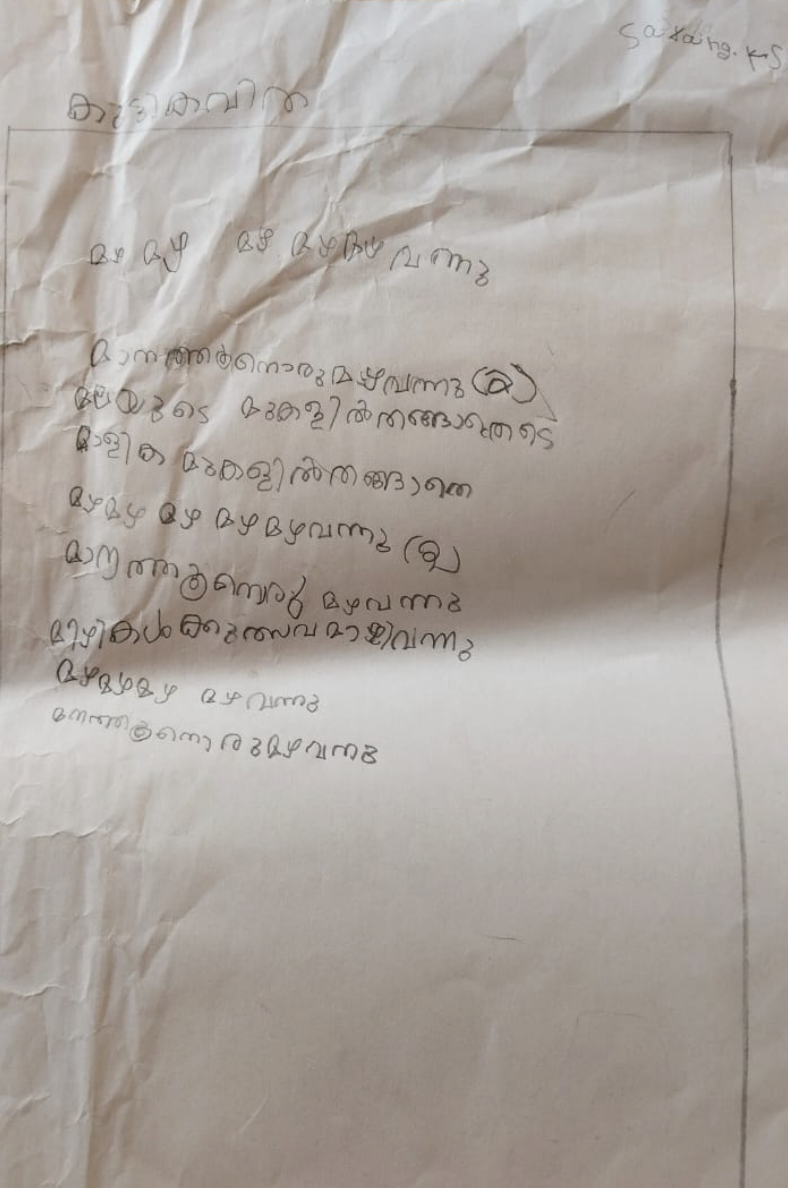 Sarang. KS
കുട്ടികവിത
മഴ മഴ മഴ മഴമഴ വന്നു
മാനത്തൂന്നൊരു മഴവന്നു (മ)
മലയുടെ മുകളിൽതങ്ങാതെ
മാളിക മുകളിൽതങ്ങാതെ
മഴമഴ മഴ മഴ മഴവന്നു (മ)
മാനത്തൂന്നൊരു മഴവന്നു
മിഴികൾക്കുത്സവമായിവന്നു
മഴമഴമഴ മഴവന്നു
മനത്തൂന്നൊരുമഴവന്നു